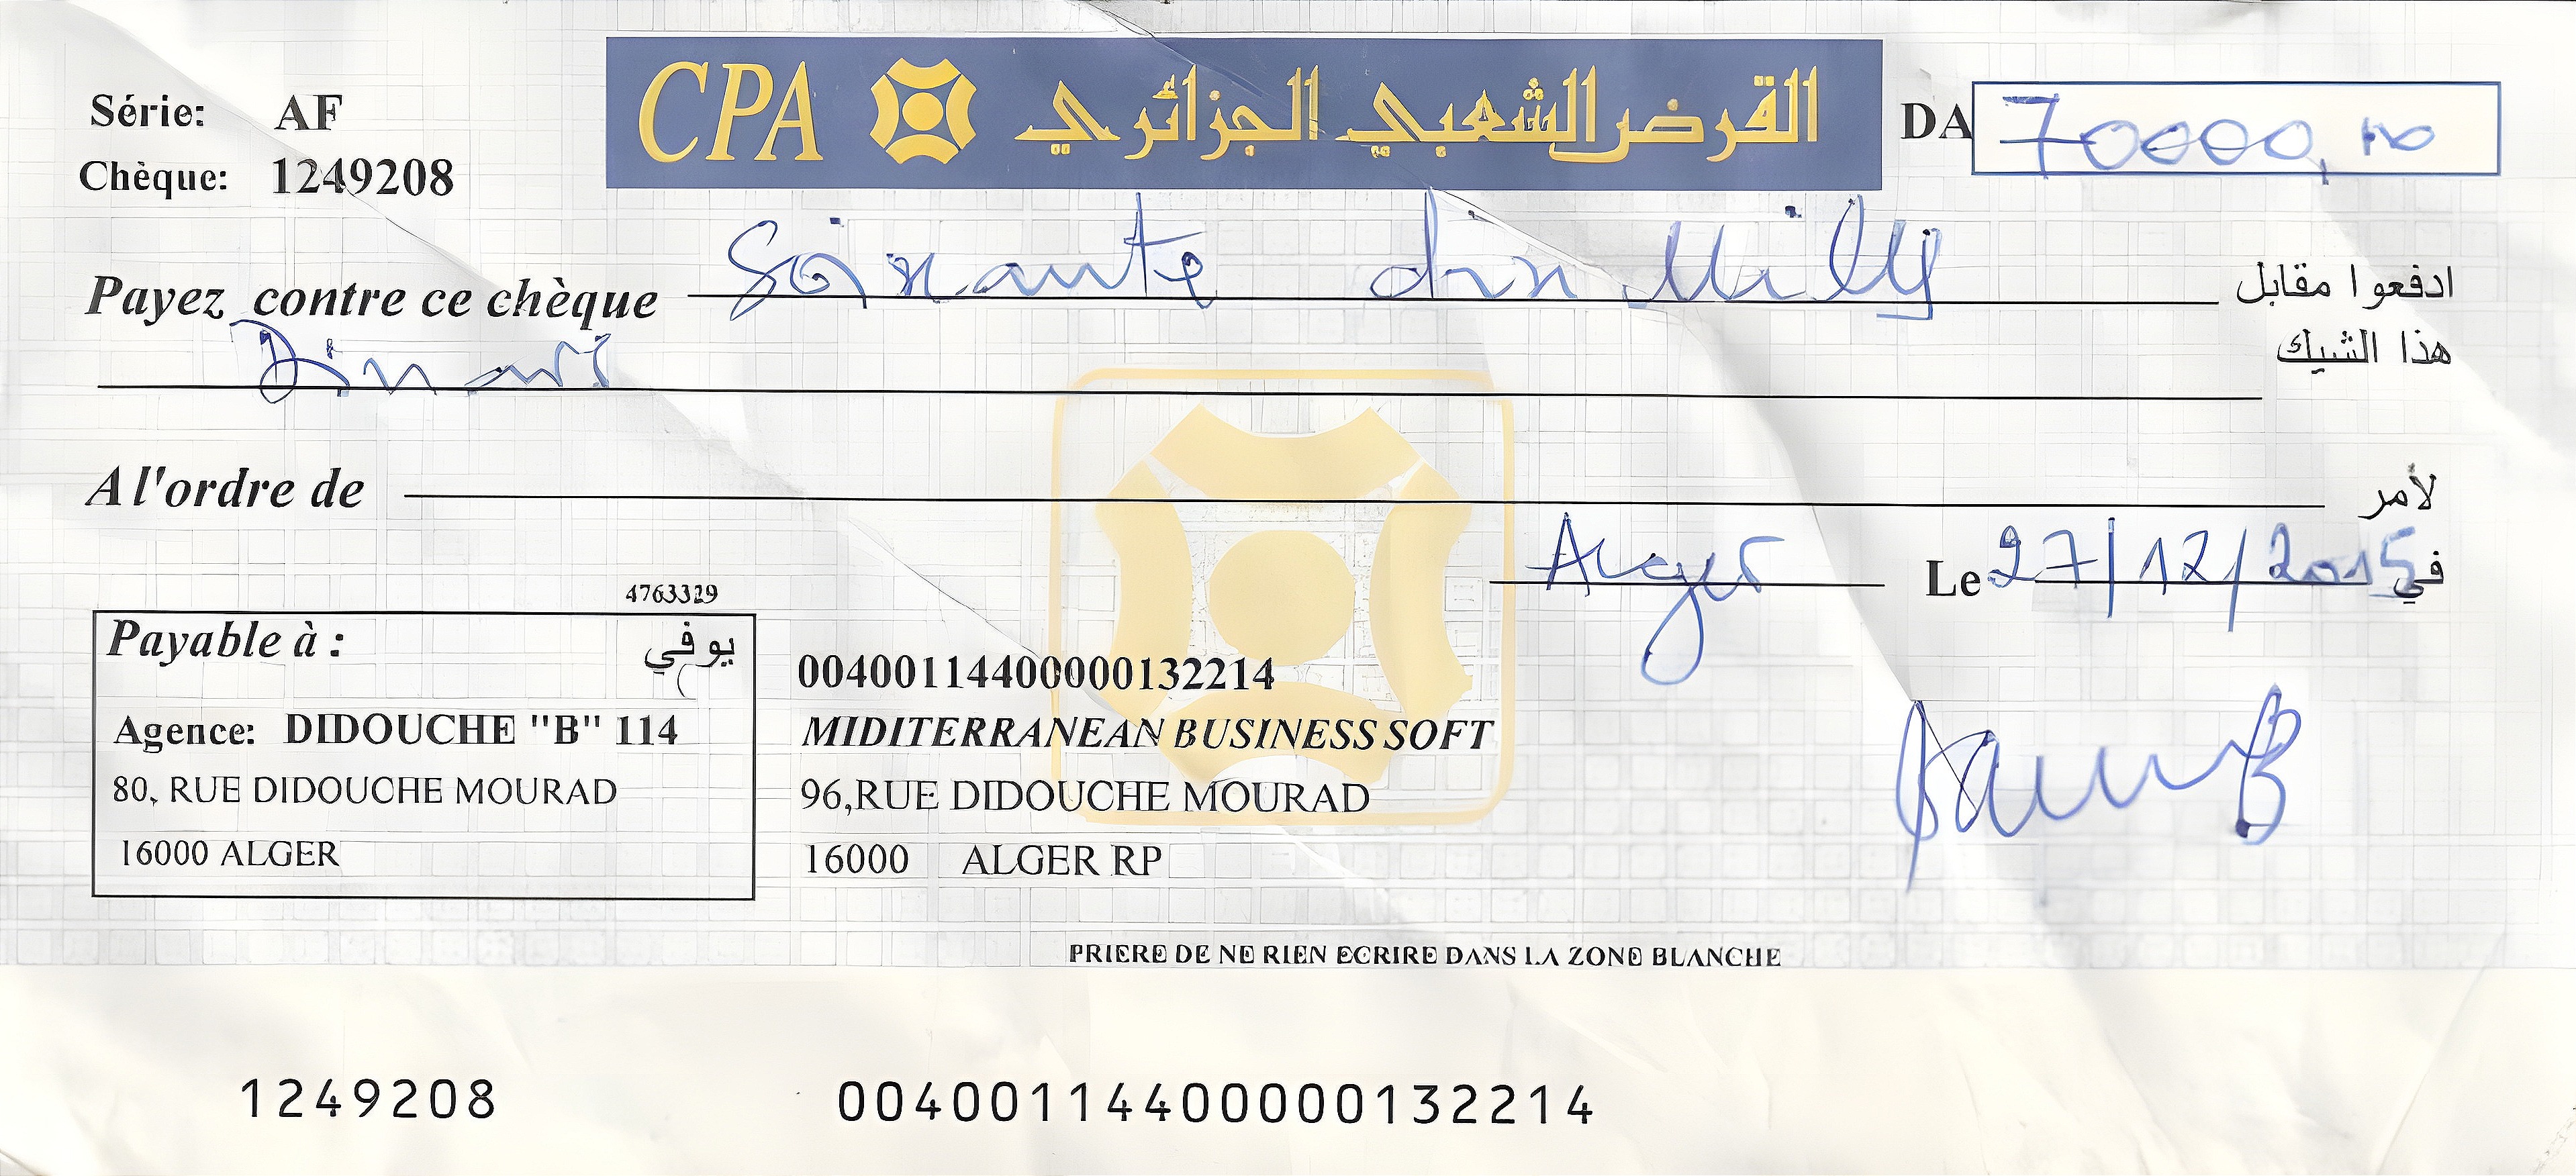 CPA القرض الشعبي الجزائري
Série: AF
DA 70000,00
Chèque: 1249208
Payez contre ce chèque Soixante dix Mille ادفعوا مقابل
هذا الشيك
Dinars
A l'ordre de لأمر
Alger Le 27/12/2015 في
4763329
Payable à : يوفي
Agence: DIDOUCHE "B" 114
80, RUE DIDOUCHE MOURAD
16000 ALGER
00400114400000132214
MIDITERRANEAN BUSINESS SOFT
96,RUE DIDOUCHE MOURAD
16000 ALGER RP
PRIERE DE NE RIEN ECRIRE DANS LA ZONE BLANCHE
1249208 00400114400000132214